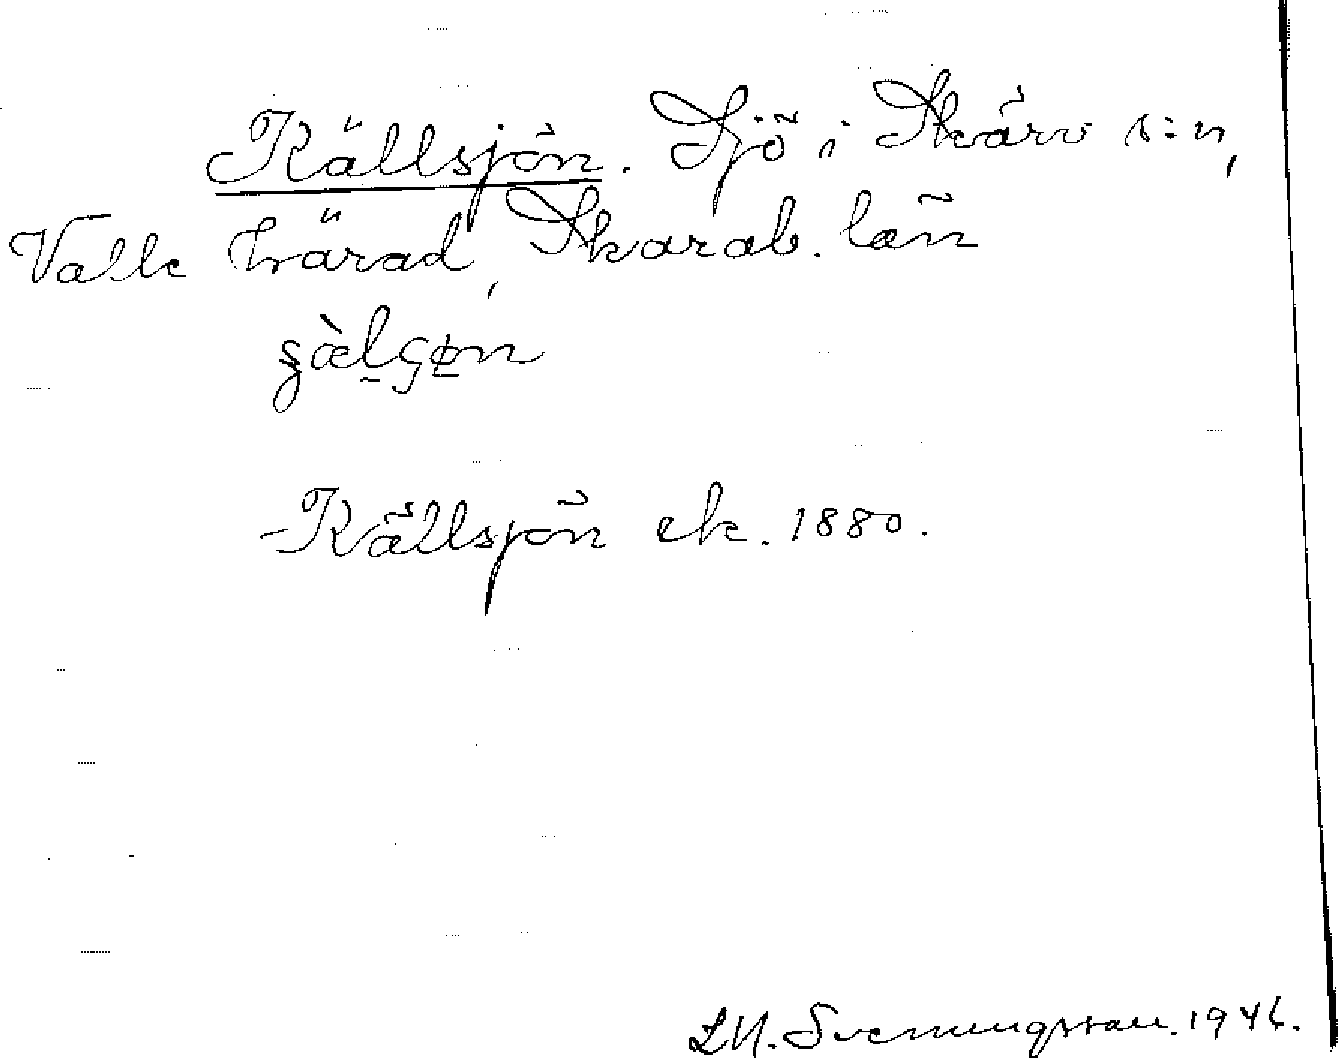 Källsjön. Sjö i Skärv s:n,
Valle härad, Skarab. län
Källsjön ek. 1880.
Svenungsson. 1946.